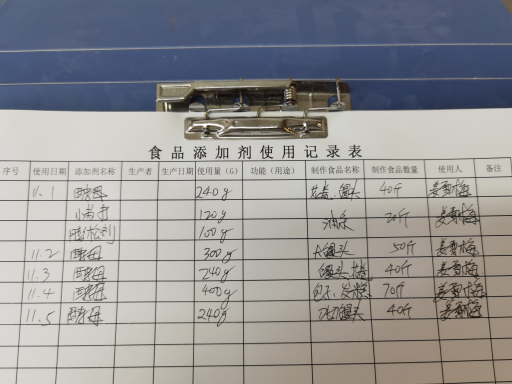 食品添加剂使用记录表
序号 使用日期 添加剂名称 生产者 生产日期 使用量（G） 功能（用途） 制作食品名称 制作食品数量 使用人 备注
11.1 酵母 240g 花卷、馒头 40斤 姜雪梅
小苏打 120g 油条 30斤 姜雪梅
膨松剂 100g
11.2 酵母 300g 大馒头 50斤 姜雪梅
11.3 酵母 240g 馒头 40斤 姜雪梅
11.4 酵母 400g 包子、发糕 70斤 姜雪梅
11.5 酵母 240g 刀切馒头 40斤 姜雪梅